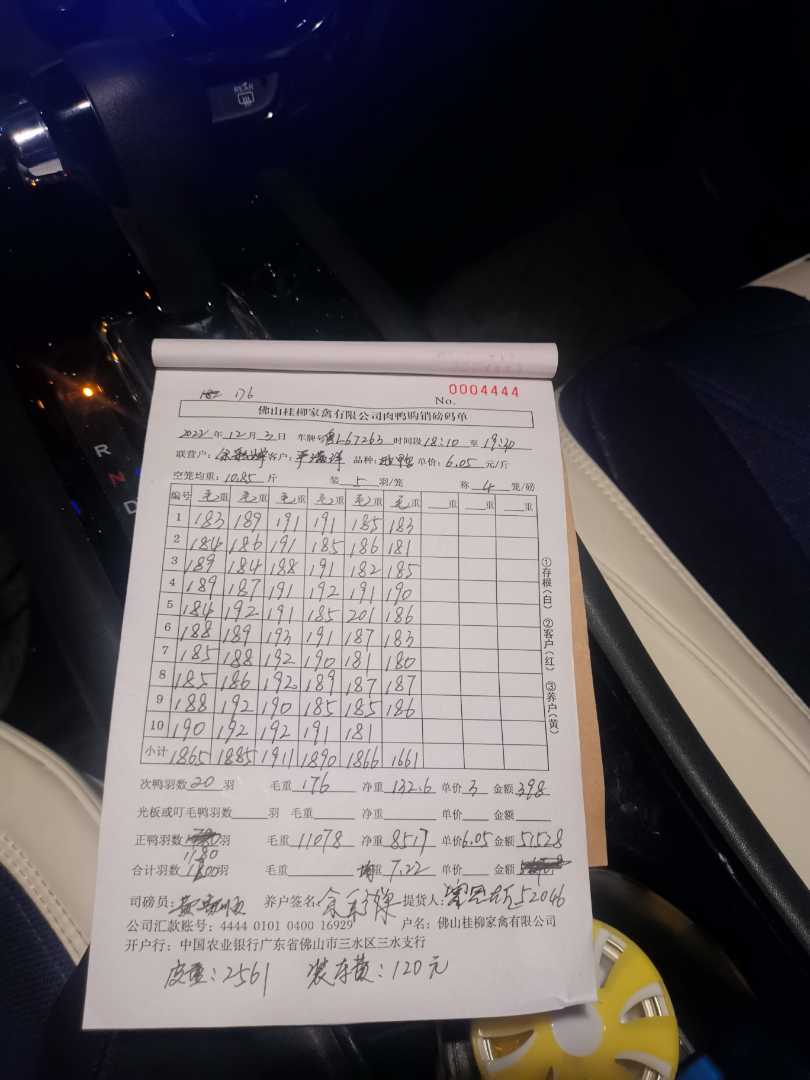 176
No. 0004444
佛山桂柳家禽有限公司肉鸭购销磅码单
2022年12月3日 车牌号 L67263 时间段18:10至19:30
联营户: 客户: 品种: 单价:6.05元/斤
空笼均重:10.85斤 装5羽/笼 称4笼/磅
编号 毛重 毛重 毛重 毛重 毛重 毛重 重 重 重
1 183 189 191 191 185 183
2 184 186 191 185 186 181
3 189 184 188 191 182 185
4 189 187 191 192 191 190
5 184 192 191 185 201 186
6 188 189 193 191 187 183
7 185 188 192 190 181 180
8 185 186 192 189 187 187
9 188 192 190 185 185 186
10 190 192 192 191 181
小计 1865 1885 1911 1890 1866 1661
①存根(白) ②客户(红) ③养户(黄)
次鸭羽数20羽 毛重176 净重132.6 单价3 金额398
光板或叮毛鸭羽数 羽 毛重 净重 单价 金额
正鸭羽数1180羽 毛重11078 净重8517 单价6.05 金额51528
合计羽数1200羽 毛重 均重7.22 单价 金额
司磅员: 养户签名: 提货人: 52046
公司汇款账号: 4444 0101 0400 16929 户名: 佛山桂柳家禽有限公司
开户行: 中国农业银行广东省佛山市三水区三水支行
皮重:2561 装车费:120元
R
N
D